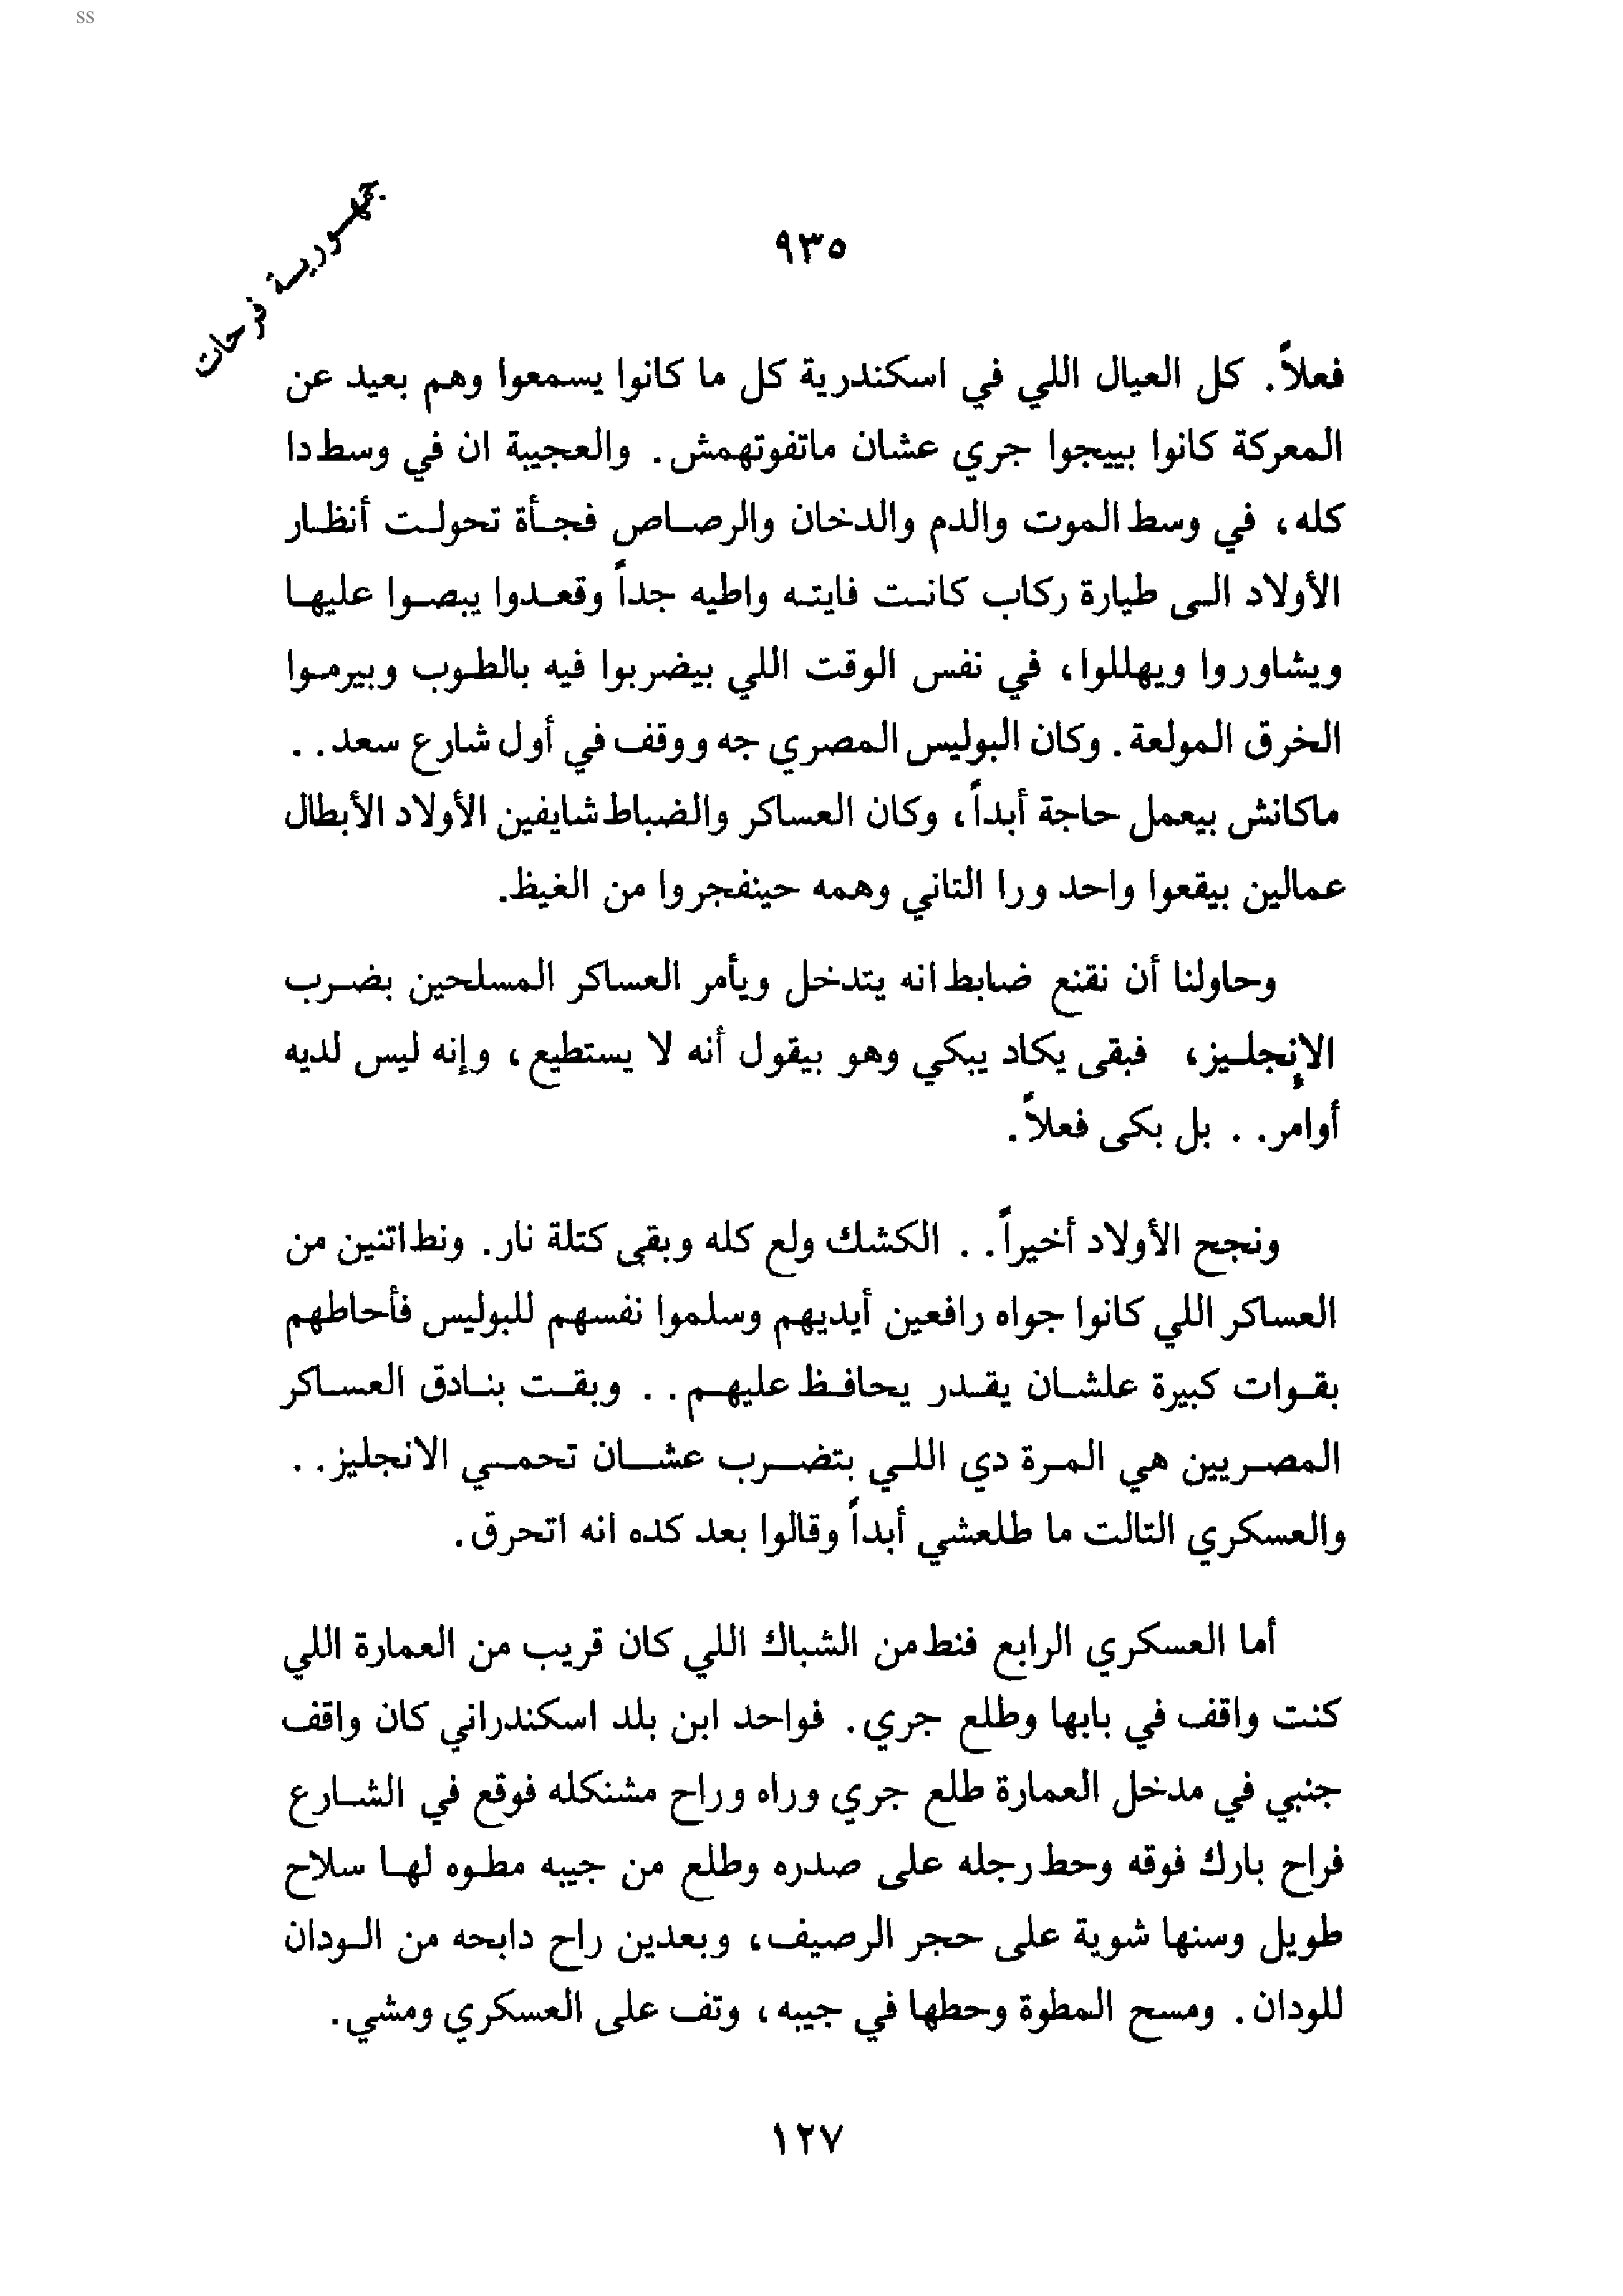 ss
جمهورية فرحات
٩٣٥
فعلاً. كل العيال اللي في اسكندرية كل ما كانوا يسمعوا وهم بعيد عن
المعركة كانوا بييجوا جري عشان ماتفوتهمش. والعجيبة ان في وسط دا
كله، في وسط الموت والدم والدخان والرصاص فجأة تحولت أنظار
الأولاد الى طيارة ركاب كانت فايته واطيه جداً وقعدوا يبصوا عليها
ويشاوروا ويهللوا، في نفس الوقت اللي بيضربوا فيه بالطوب وبيرموا
الخرق المولعة. وكان البوليس المصري جه ووقف في أول شارع سعد..
ماكانش بيعمل حاجة أبداً، وكان العساكر والضباط شايفين الأولاد الأبطال
عمالين بيقعوا واحد ورا التاني وهمه حينفجروا من الغيظ.
وحاولنا أن نقنع ضابط انه يتدخل ويأمر العساكر المسلحين بضرب
الإنجليز، فبقى يكاد يبكي وهو بيقول أنه لا يستطيع، وإنه ليس لديه
أوامر.. بل بكى فعلاً.
ونجح الأولاد أخيراً.. الكشك ولع كله وبقى كتلة نار. ونط اتنين من
العساكر اللي كانوا جواه رافعين أيديهم وسلموا نفسهم للبوليس فأحاطهم
بقوات كبيرة علشان يقدر يحافظ عليهم.. وبقت بنادق العساكر
المصريين هي المرة دي اللي بتضرب عشان تحمي الانجليز..
والعسكري التالت ما طلعشي أبداً وقالوا بعد كده انه اتحرق.
أما العسكري الرابع فنط من الشباك اللي كان قريب من العمارة اللي
كنت واقف في بابها وطلع جري. فواحد ابن بلد اسكندراني كان واقف
جنبي في مدخل العمارة طلع جري وراه وراح مشنكله فوقع في الشارع
فراح بارك فوقه وحط رجله على صدره وطلع من جيبه مطوه لها سلاح
طويل وسنها شوية على حجر الرصيف، وبعدين راح دابحه من الودان
للودان. ومسح المطوة وحطها في جيبه، وتف على العسكري ومشي.
١٢٧